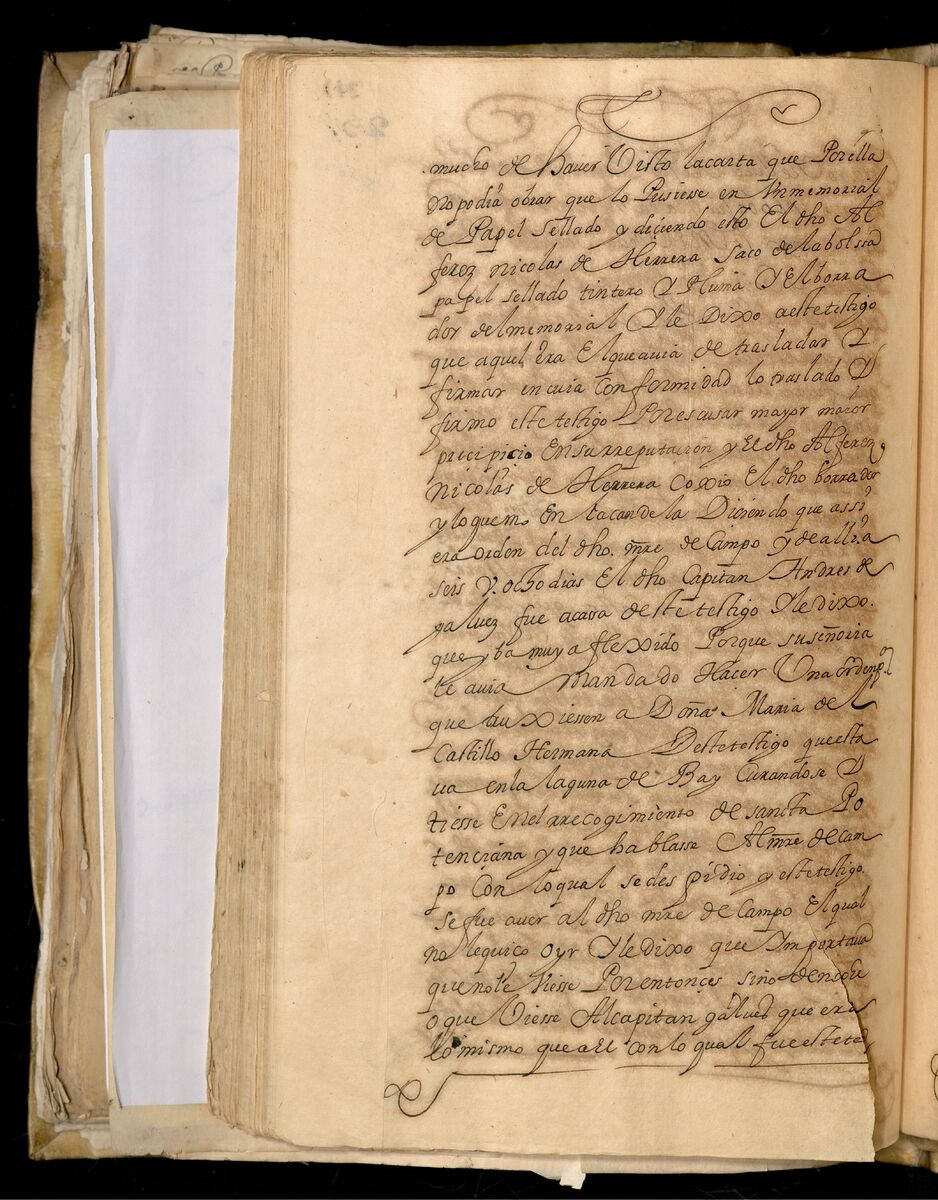 mucho de haver Visto lacarta que Porella
no podia obrar que lo Pusiesse en Vnmemorial
de Papel sellado y diçiendo esto El dho Al
ferez nicolas de Herrera saco delabolssa
papel sellado tintero Y Pluma Y Elborra
dor delmemorial Y le Dixo aestetestigo
que aquel Era Elqueavia de trasladar Y
firmar encuia Conformidad lo traslado Y
firmo estetestigo Porescusar mayor maior
preçipiçio Ensurreputaçion y El dho Alferez
nicolas de Herrera Coxio El dho borrador
y loquemo En lacandela Diçiendo que assi
era orden del dho. mre de Campo y de alli a
seis y ocho dias El dho Capitan Andres de
galuez fue acassa destetestigo Yledixo.
que yba muy aflexido Porque suseñoria
le auia Mandado Hacer Una orden pa
que truxiessen a Doña Maria del
Castillo Hermana Destetestigo questa
ua enla laguna de Bay Curandose Y
tiesse Enel rrecogimiento de sancta Po
tençiana y que hablasse Al mre de cam
po Con loqual sedespidio y estetestigo.
se fue auer al dho mre de Campo Elqual
no lequico oyr Yledixo que Importaua
quenole Viesse Porentonçes sino denoche
o que Viesse Alcapitan galuez que era
lo mismo que a el con lo qual fue estete